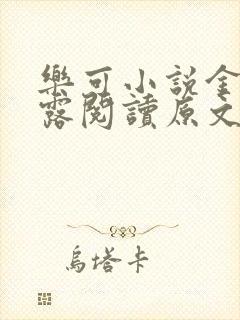 樂可小說金
露閱讀原文
烏塔卡